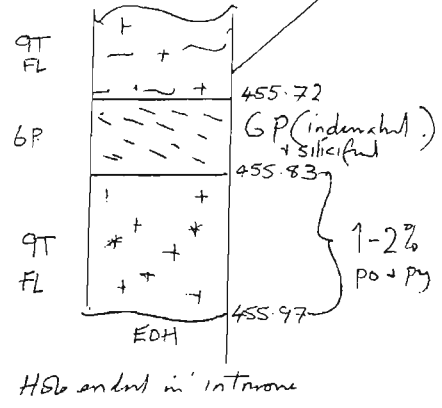 9T
FL
455.72
6P
6P (indurated
+ silicified)
455.83
9T
FL
1-2%
po + py
455.97
EOH
Hole ended in intrusive